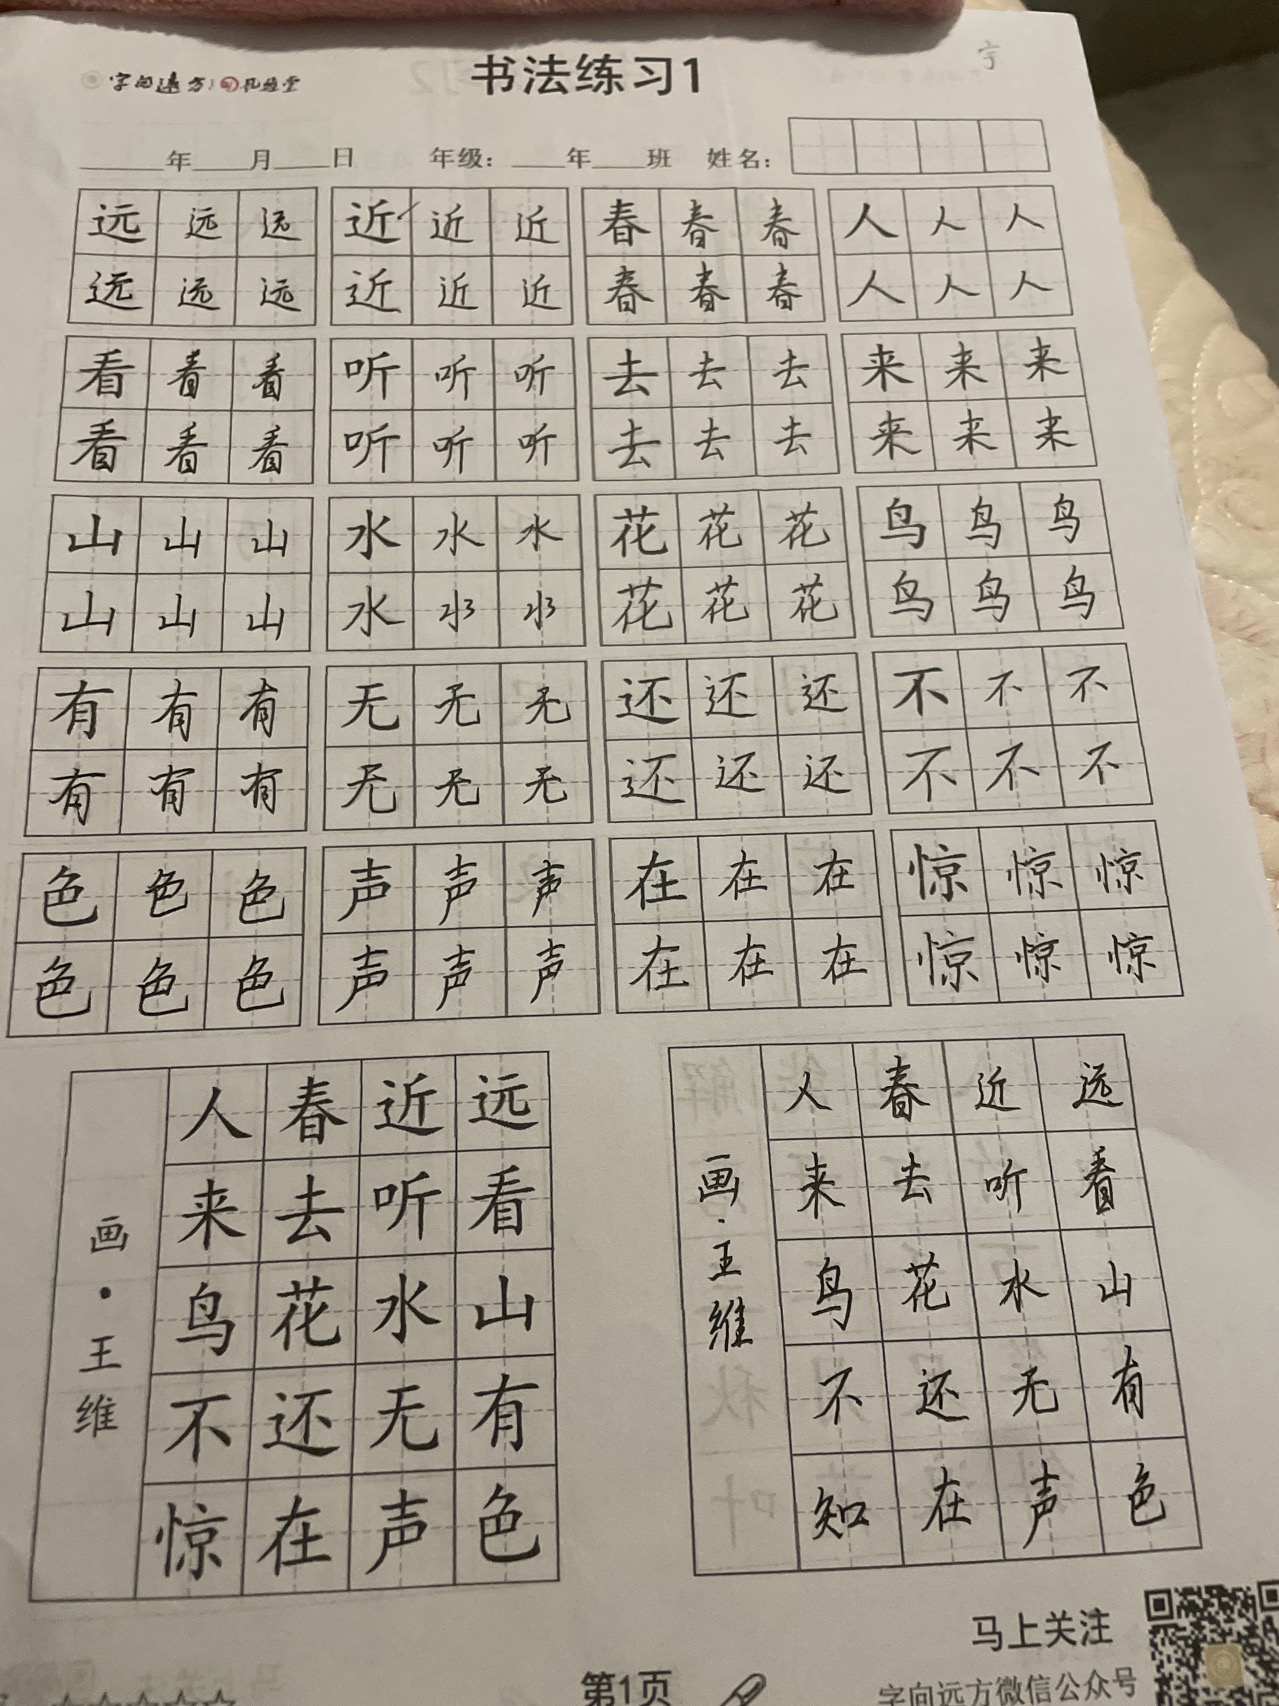 字向远方
书法练习1
字
年 月 日 年级: 年 班 姓名:
远 远 远 近 近 近 春 春 春 人 人 人
远 远 远 近 近 近 春 春 春 人 人 人
看 看 看 听 听 听 去 去 去 来 来 来
看 看 看 听 听 听 去 去 去 来 来 来
山 山 山 水 水 水 花 花 花 鸟 鸟 鸟
山 山 山 水 水 水 花 花 花 鸟 鸟 鸟
有 有 有 无 无 无 还 还 还 不 不 不
有 有 有 无 无 无 还 还 还 不 不 不
色 色 色 声 声 声 在 在 在 惊 惊 惊
色 色 色 声 声 声 在 在 在 惊 惊 惊
远看山有色
近听水无声
春去花还在
人来鸟不惊
画·王维
远看山有色
近听水无声
春去花还在
人来鸟不知
画·王维
马上关注
字向远方微信公众号
第1页